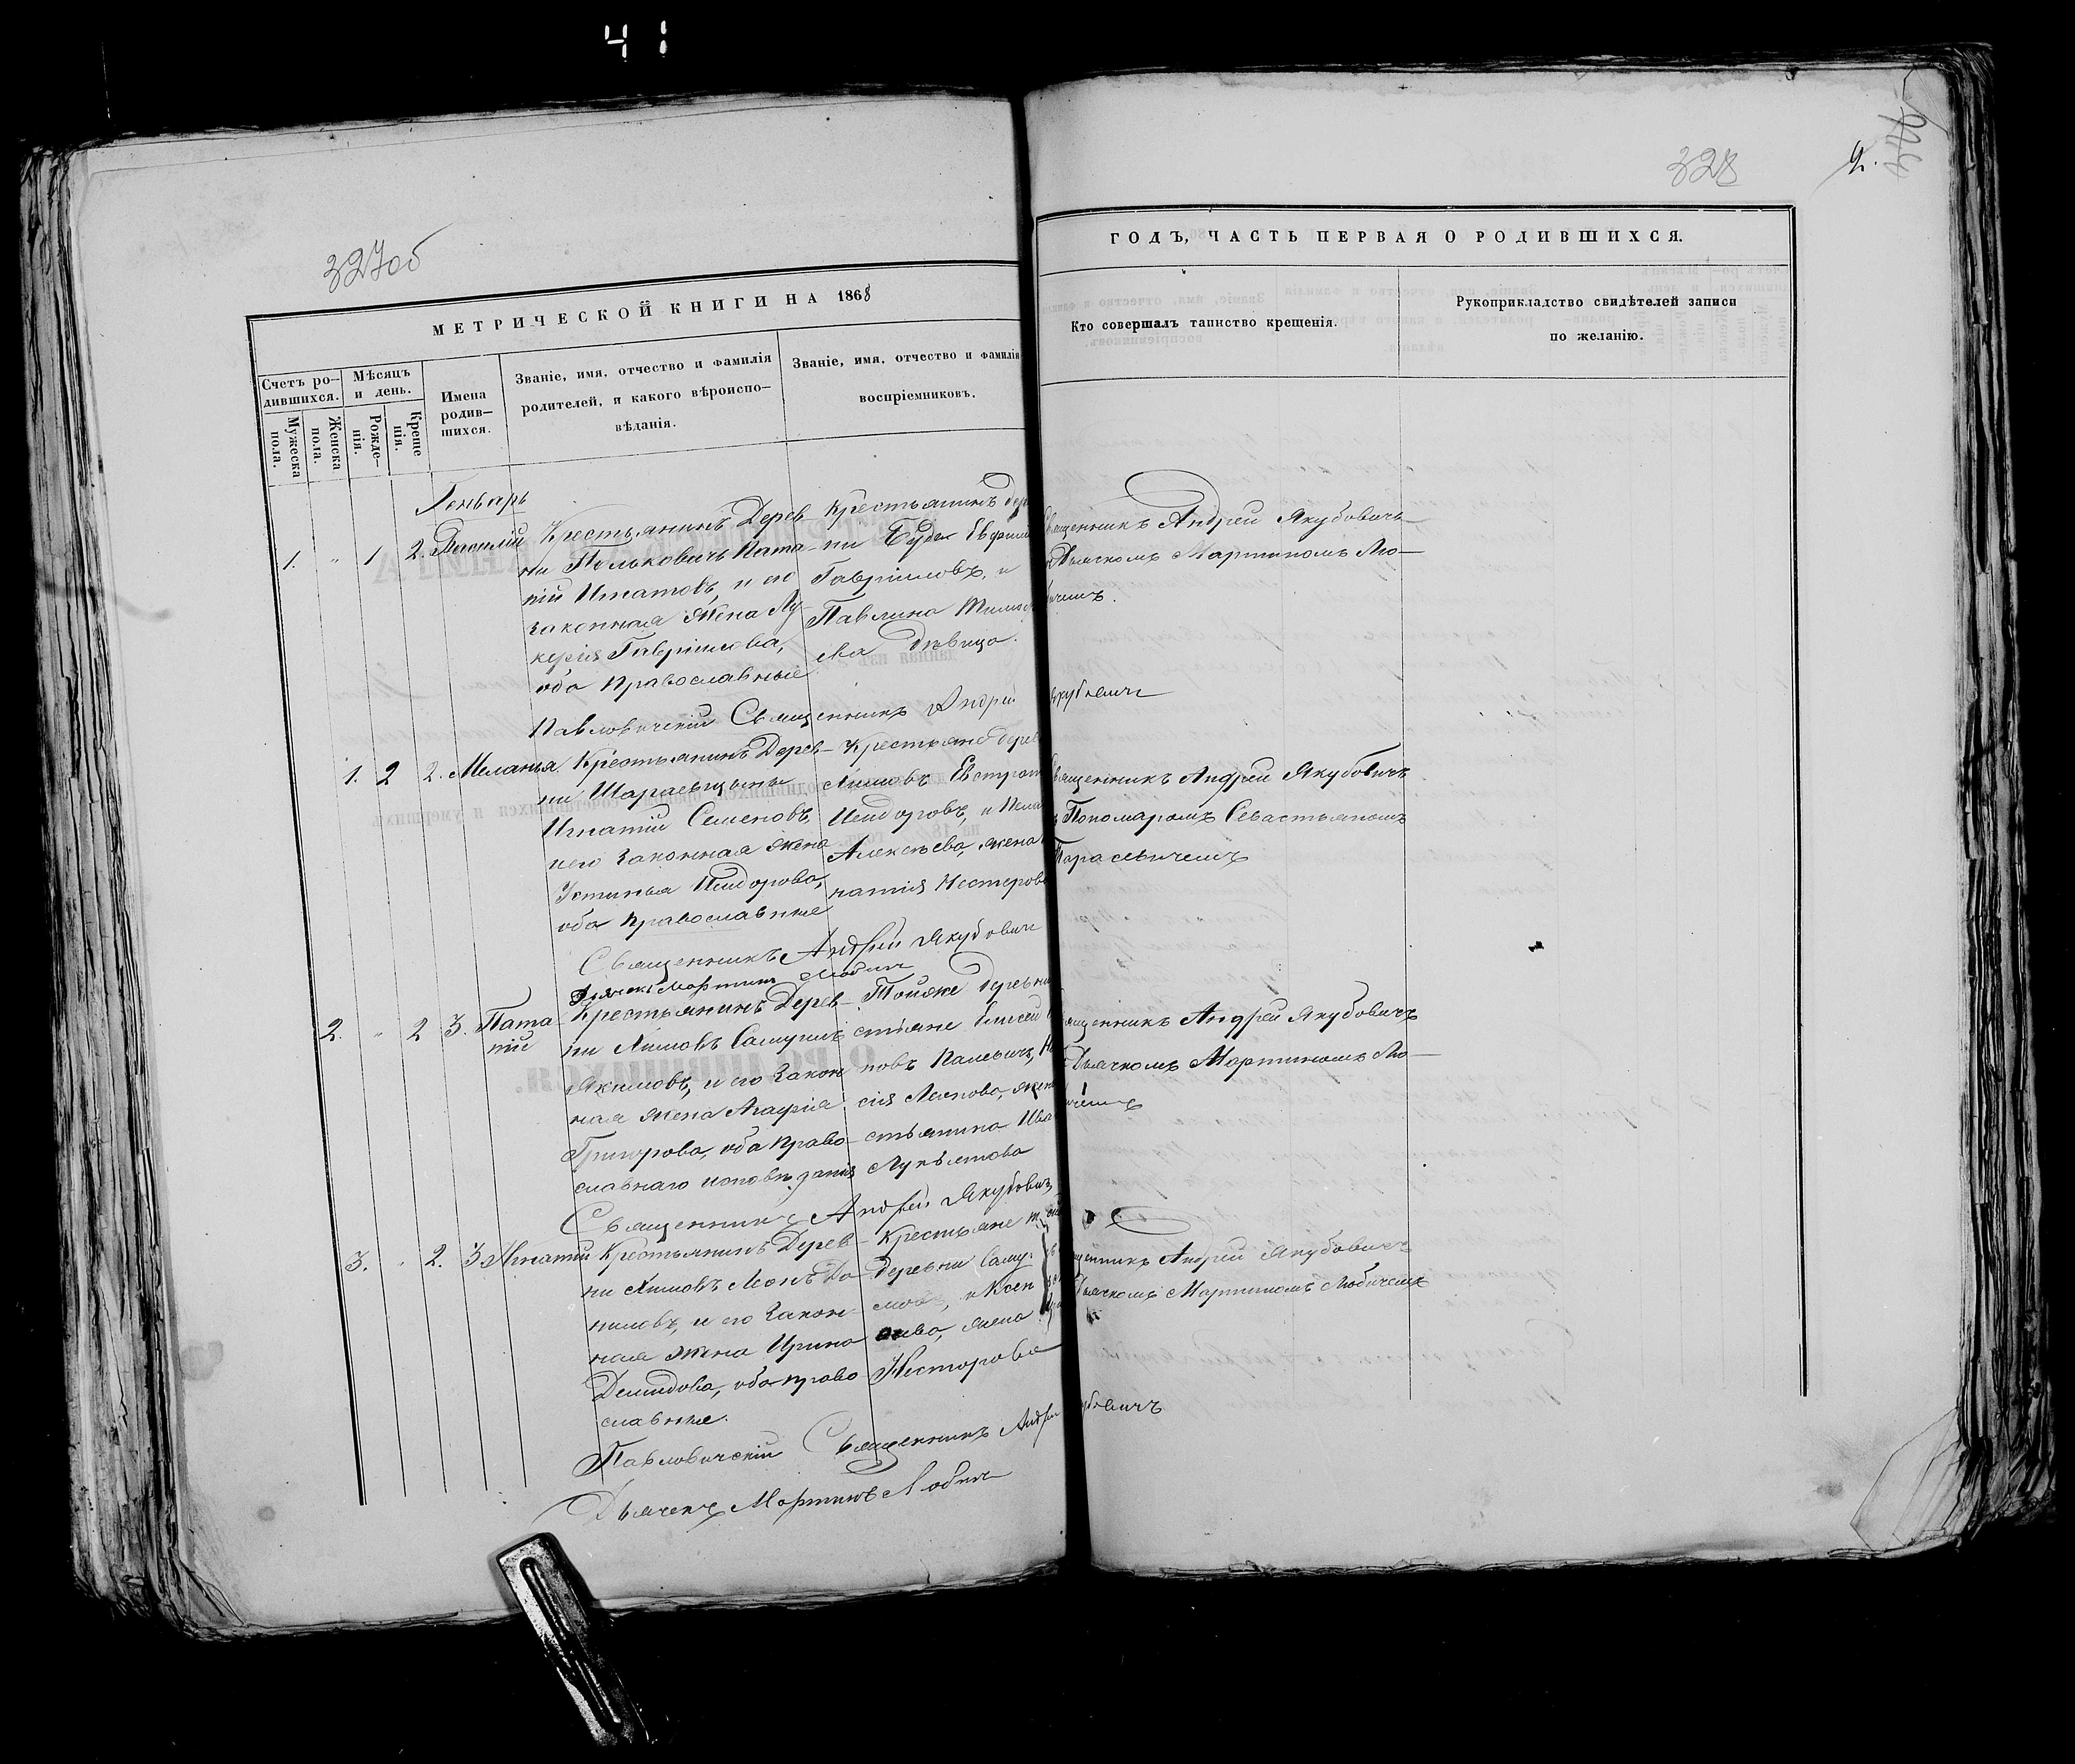 41
327об
328
2.
МЕТРИЧЕСКОЙ КНИГИ НА 1868
ГОДЪ, ЧАСТЬ ПЕРВАЯ О РОДИВШИХСЯ.
Счетъ ро-
дившихся.
Мужеска
пола.
Женска
пола.
Мѣсяцъ
и день.
Рожде-
нія.
Креще
нія.
Имена
родив-
шихся.
Званіе, имя, отчество и фамилія
родителей, и какого вѣроиспо-
вѣданія.
Званіе, имя, отчество и фамилія
воспріемниковъ.
Кто совершалъ таинство крещенія.
Рукоприкладство свидѣтелей записи
по желанію.
Генварь
1. " 1 2. Василій
Крестьянинъ Дерев-
ни Польковичъ Пата-
пій Игнатовъ, и его
законная жена Лу-
керія Гаврилова,
оба православные
Крестьянинъ дер
ни Буды
Гавриловъ, и
Павлина
ва дѣвица.
Священникъ Андрей Якубовичъ
Дьячкомъ Мартиномъ Лю-
бичемъ.
Павловичскій Священникъ Андрей Якубовичъ
1. 2 2. Меланья
Крестьянинъ Дерев-
ни
Игнатій Семеновъ,
и его законная жена
Устинья Исидорова,
оба православные
Крестьяне дерев
Лимовъ Евстрат
Исидоровъ, и Пела
Алексѣева, жена
натія Нестерова
Священникъ Андрей Якубовичъ
Пономаромъ Севастьяномъ
Тарасевичемъ
Священникъ Андрей Якубовичъ
Дьячекъ Мартинъ Любичъ
2. " 2 3. Пата-
пій
Крестьянинъ Дерев-
ни Лимовъ Самуилъ
Якимовъ, и его закон
ная жена Агафія
Григорова, оба право-
славнаго исповѣданія
Тойже деревни
стьяне Елисей
повъ
сія жен
стьянина Ива
Лукьянова
Священникъ Андрей Якубовичъ
Дьячкомъ Мартиномъ Лю-
бичемъ
Священникъ Андрей Якубовичъ
3. " 2. 3 Игнатій
Крестьянинъ Дерев-
ни Лимовъ Леонъ Да-
ниловъ, и его закон-
ная жена Ирина
Демидова, оба право
славные.
Крестьяне
деревни Саму-
и Ксен
ева, жена
Несторова
Священникъ Андрей Якубовичъ
Дьячкомъ Мартиномъ Любичемъ
Павловичскій Священникъ Андрей Якубовичъ
Дьячекъ Мартинъ Любичъ